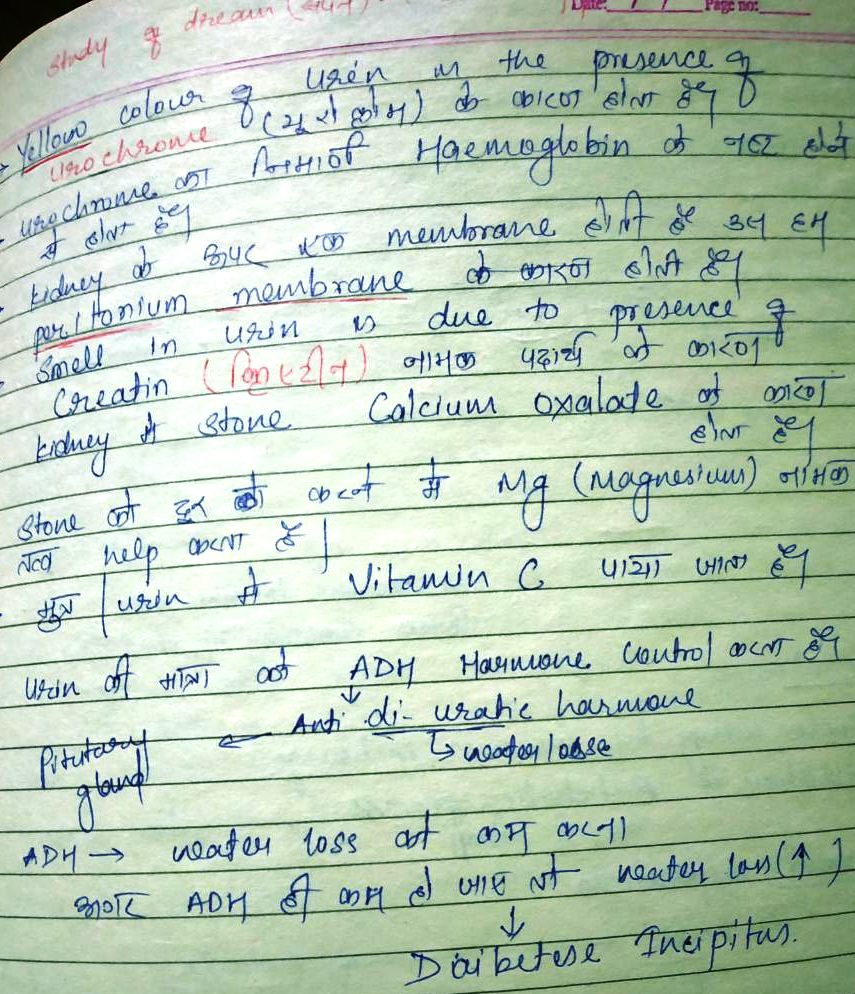 Date: / / Page no:
study of dream (
Yellow colour of urén is the presence of
urochrome (यूरोक्रोम) के कारण होता है।
urochrome का निर्माण Haemoglobin के नष्ट होने
से होता है।
kidney के ऊपर एक membrane होती है उसे हम
peritonium membrane के कारण होती है।
Smell in urin is due to presence of
Creatin (क्रिएटीन) नामक पदार्थ के कारण
kidney में stone Calcium oxalade के कारण
होता है।
Stone को दूर को करने में Mg (Magnesium) नामक
तत्व help करता है |
मुत्र | urin में Vitamin C पाया जाता है।
urin की मात्रा को ADH Harmone Control करता है।
Pitutary gland ← Anti di-uratic harmone
↳ water losse
ADH → water loss को कम करना।
अगर ADH ही कम हो जाए तो water loss (↑)
↓
Daibetese Incipitus.